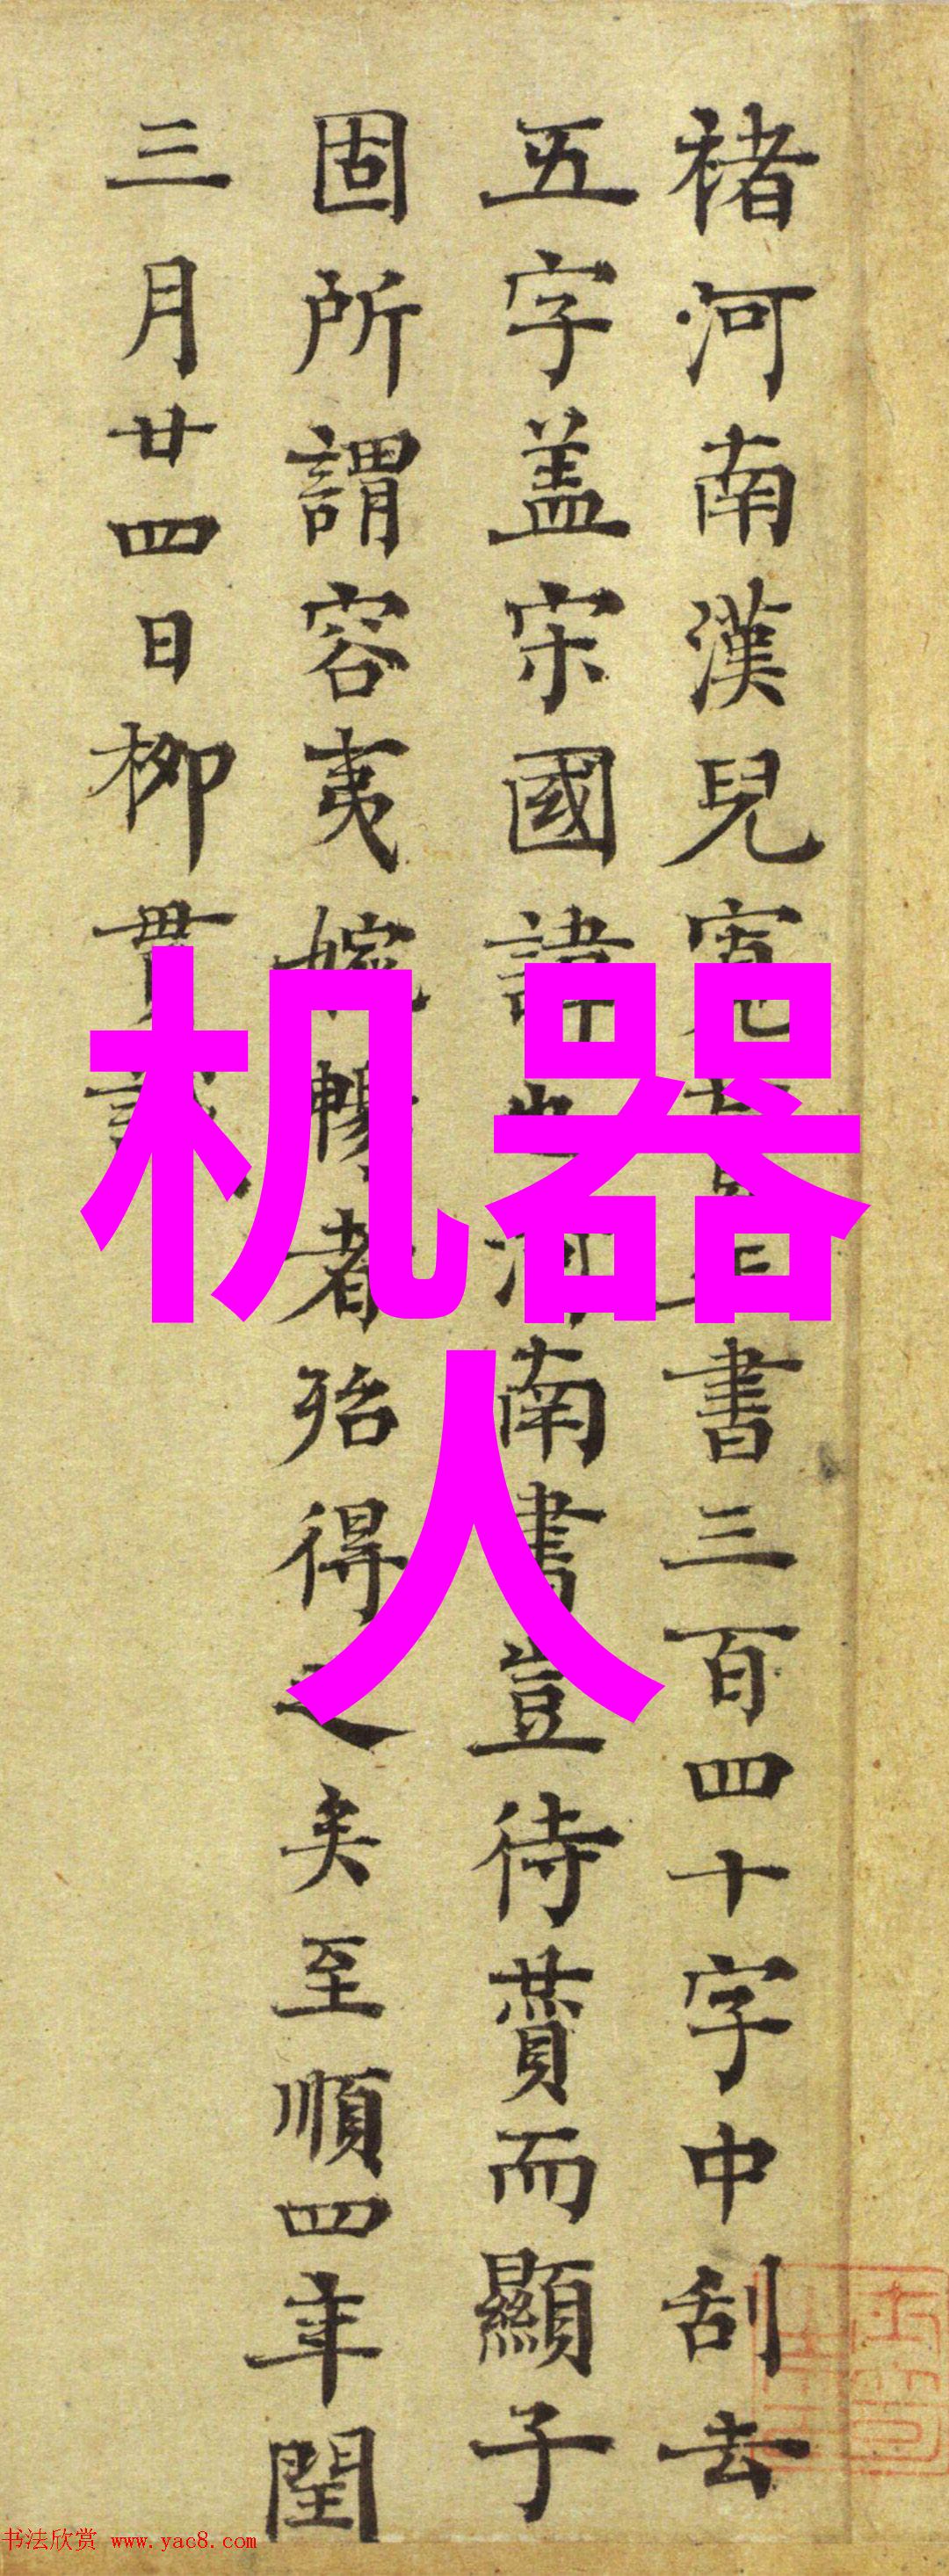 褚河南漢兒寬書三百四十字中刮去
五字盖宋國諱也河南書豈待賛而顯子
固所謂容夷婉暢者殆得之矣至順四年閏
三月廿四日柳貫
机器
人
书法欣赏 www.yac8.com